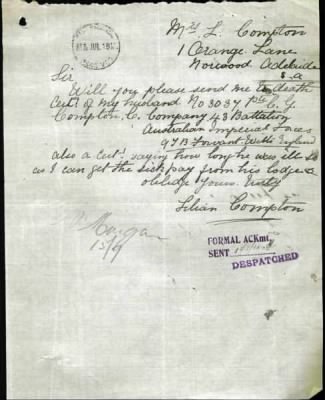 Mrs L. Compton
1 Orange Lane
Norwood Adelaide
S.A
Sir
Will you please send me death
Cert. of my husband No 3037 Pte C. G.
Compton. C. Company 43 Battalion
Australian Imperial Forces
England
also a cert. saying how long he was ill so
as I can get the sick pay from his lodge &
oblidge Yours truly
Lilian Compton
FORMAL ACKmt.
SENT
DESPATCHED